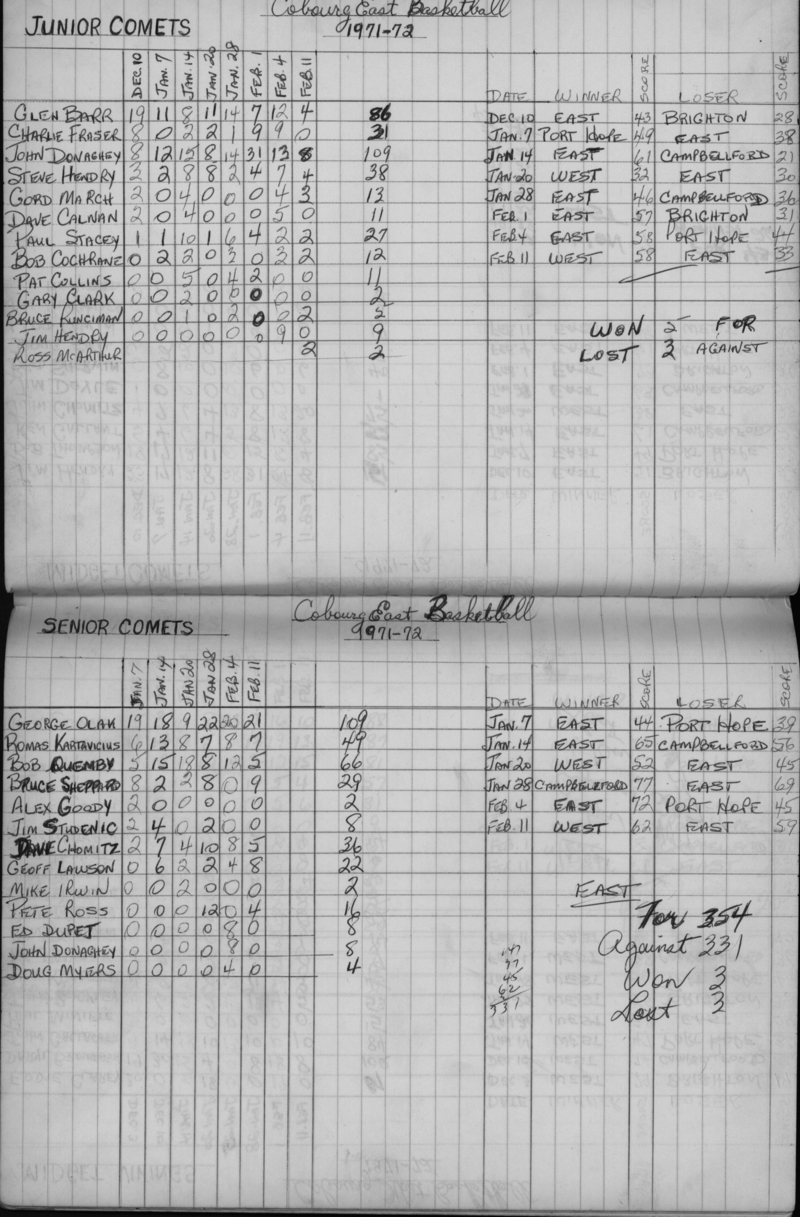 Cobourg East Basketball
JUNIOR COMETS 1971-72
DEC. 10 JAN. 7 JAN. 14 JAN. 20 JAN. 28 FEB. 1 FEB. 4 FEB 11 DATE WINNER SCORE LOSER SCORE
GLEN BARR 19 11 8 11 14 7 12 4 86 DEC. 10 EAST 43 BRIGHTON 28
CHARLIE FRASER 8 0 2 2 1 9 9 0 31 JAN. 7 PORT HOPE 49 EAST 38
JOHN DONAGHEY 8 12 15 8 14 31 13 8 109 JAN 14 EAST 61 CAMPBELLFORD 21
STEVE HENDRY 3 2 8 8 2 4 7 4 38 JAN 20 WEST 32 EAST 30
GORD MARCH 2 0 4 0 0 0 4 3 13 JAN 28 EAST 46 CAMPBELLFORD 36
DAVE CALNAN 2 0 4 0 0 0 5 0 11 FEB. 1 EAST 57 BRIGHTON 31
PAUL STACEY 1 1 10 1 6 4 2 2 27 FEB 4 EAST 58 PORT HOPE 44
BOB COCHRANE 0 2 2 0 3 0 3 2 12 FEB 11 WEST 58 EAST 33
PAT COLLINS 0 0 5 0 4 2 0 0 11
GARY CLARK 0 0 2 0 0 0 0 0 2
BRUCE RUNCIMAN 0 0 1 0 2 0 0 2 5
JIM HENDRY 0 0 0 0 0 0 9 0 9 WON 5 FOR
ROSS MCARTHUR 2 2 LOST 3 AGAINST
Cobourg East Basketball
SENIOR COMETS 1971-72
JAN. 7 JAN. 14 JAN 20 JAN 28 FEB. 4 FEB. 11 DATE WINNER SCORE LOSER SCORE
GEORGE OLAK 19 18 9 22 20 21 109 JAN. 7 EAST 44 PORT HOPE 39
ROMAS KARTAVICIUS 6 13 8 7 8 7 49 JAN. 14 EAST 65 CAMPBELLFORD 56
BOB QUEMBY 5 15 18 8 12 5 66 JAN 20 WEST 52 EAST 45
BRUCE SHEPPARD 8 2 2 8 0 9 29 JAN 28 CAMPBELLFORD 77 EAST 69
ALEX GOODY 2 0 0 0 0 0 2 FEB 4 EAST 72 PORT HOPE 45
JIM STUDENIC 2 4 0 2 0 0 8 FEB. 11 WEST 62 EAST 59
DAVE CHOMITZ 2 7 4 10 8 5 36
GEOFF LAWSON 0 6 2 2 4 8 22
MIKE IRWIN 0 0 2 0 0 0 2 EAST
PETE ROSS 0 0 0 12 0 4 16 For 354
ED DUPET 0 0 0 0 8 0 8 Against 331
JOHN DONAGHEY 0 0 0 0 8 0 8 147
DOUG MYERS 0 0 0 0 4 0 4 77 Won 3
45
62 Lost 3
331